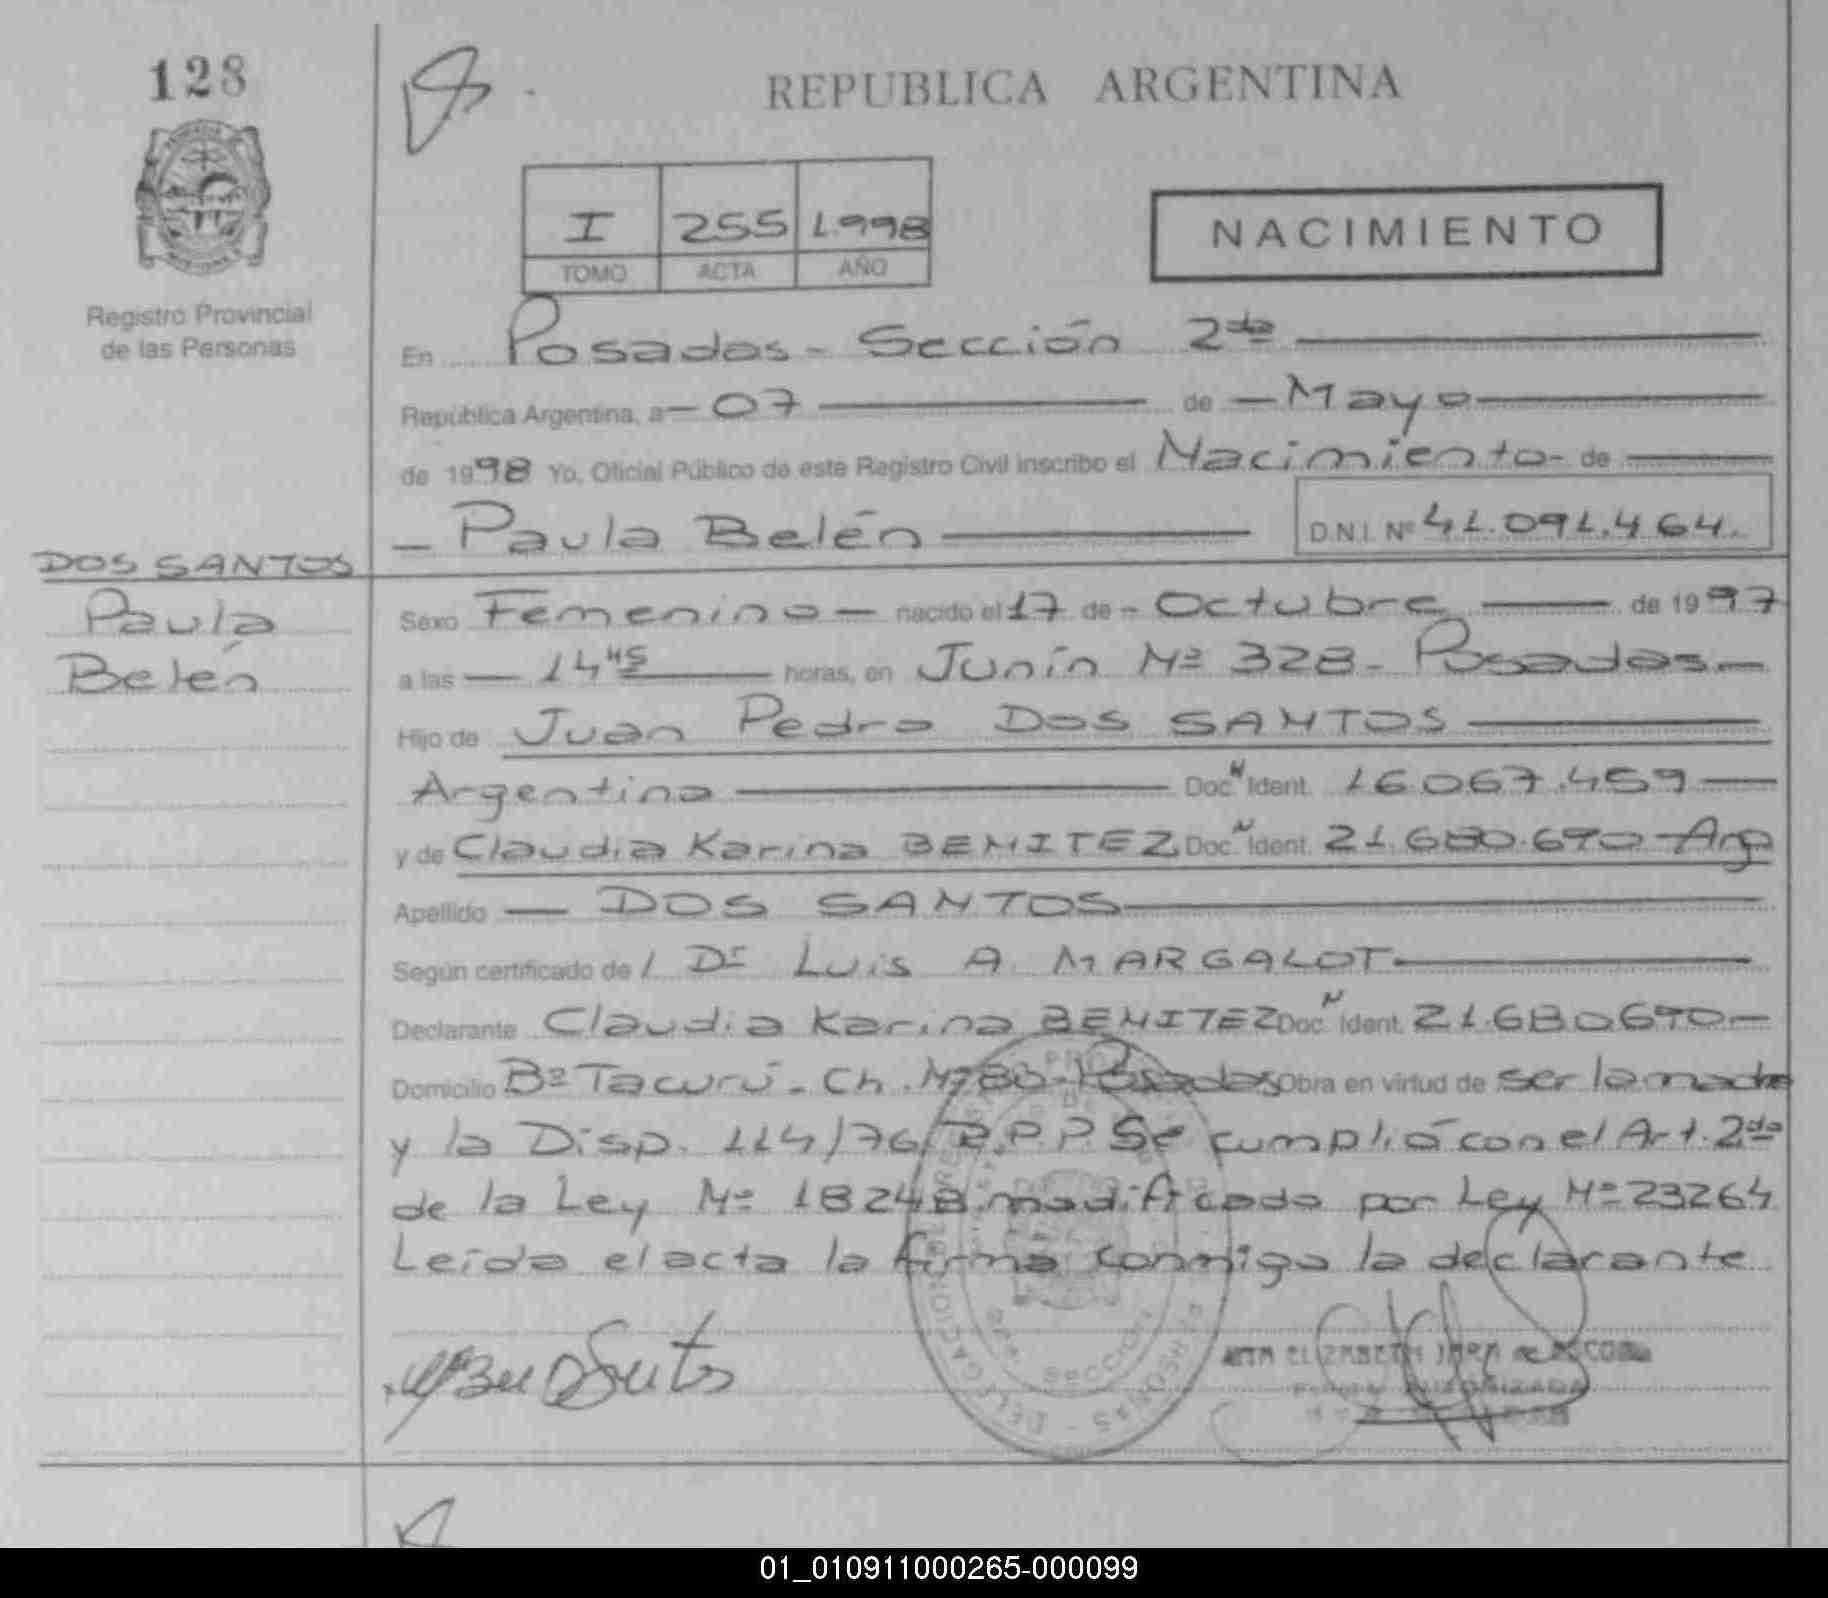 128
REPUBLICA ARGENTINA
I 255 1.998
TOMO ACTA AÑO
NACIMIENTO
Registro Provincial
de las Personas
En Posadas - Sección 2da
República Argentina, a 07 de Mayo
de 1998 Yo, Oficial Público de este Registro Civil inscribo el Nacimiento - de
Paula Belén D.N.I. Nº 41.091.464.
DOS SANTOS
Paula
Belén
Sexo Femenino nacido el 17 de Octubre de 1997
a las 14 45 horas, en Junín Nº 328 - Posadas
Hijo de Juan Pedro DOS SANTOS
Argentino Doc. N Ident. 16.067.459
y de Claudia Karina BENITEZ Doc. N Ident. 21.680.690 Arg
Apellido DOS SANTOS
Según certificado de / Dr Luis A. MARGALOT
Declarante Claudia Karina BENITEZ Doc. N Ident. 21.680690
Domicilio Bº Tacurú - Ch. Nº 80 - Posadas Obra en virtud de ser la madre
y la Disp. 114/76 R.P.P. Se cumplió con el Art. 2do
de la Ley Nº 18248 modificado por Ley Nº 23264
Leída el acta la firma conmigo la declarante
SECCION
01_010911000265-000099